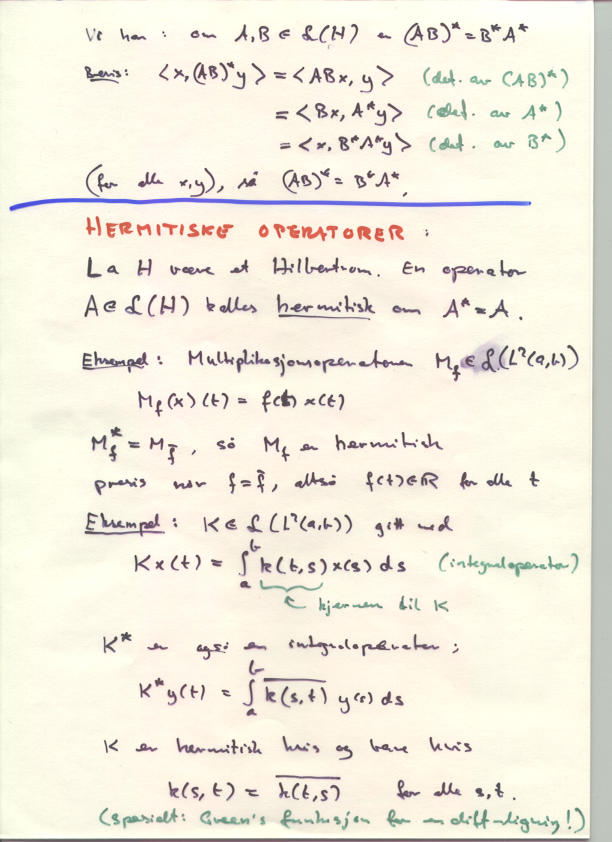 Vi har : om A, B ∈ L(H) er (AB)* = B*A*
Bevis: <x, (AB)*y> = <ABx, y> (def. av (AB)*)
= <Bx, A*y> (def. av A*)
= <x, B*A*y> (def. av B*)
(for alle x,y), så (AB)* = B*A*.
HERMITISKE OPERATORER :
La H være et Hilbertrom. En operator
A ∈ L(H) kalles hermitisk om A* = A.
Eksempel : Multiplikasjonsoperatoren M_f ∈ L(L²(a,b))
M_f(x)(t) = f(t) x(t)
M_f* = M_f̄, så M_f er hermitisk
presis når f = f̄, altså f(t) ∈ ℝ for alle t
Eksempel : K ∈ L(L²(a,b)) gitt ved
Kx(t) = ∫_a^b k(t,s) x(s) ds (integraloperator)
kjernen til K
K* er også en integraloperator ;
K*y(t) = ∫_a^b \overline{k(s,t)} y(s) ds
K er hermitisk hvis og bare hvis
k(s,t) = \overline{k(t,s)} for alle s, t.
(spesielt: Green's funksjon for en diff.ligning!)